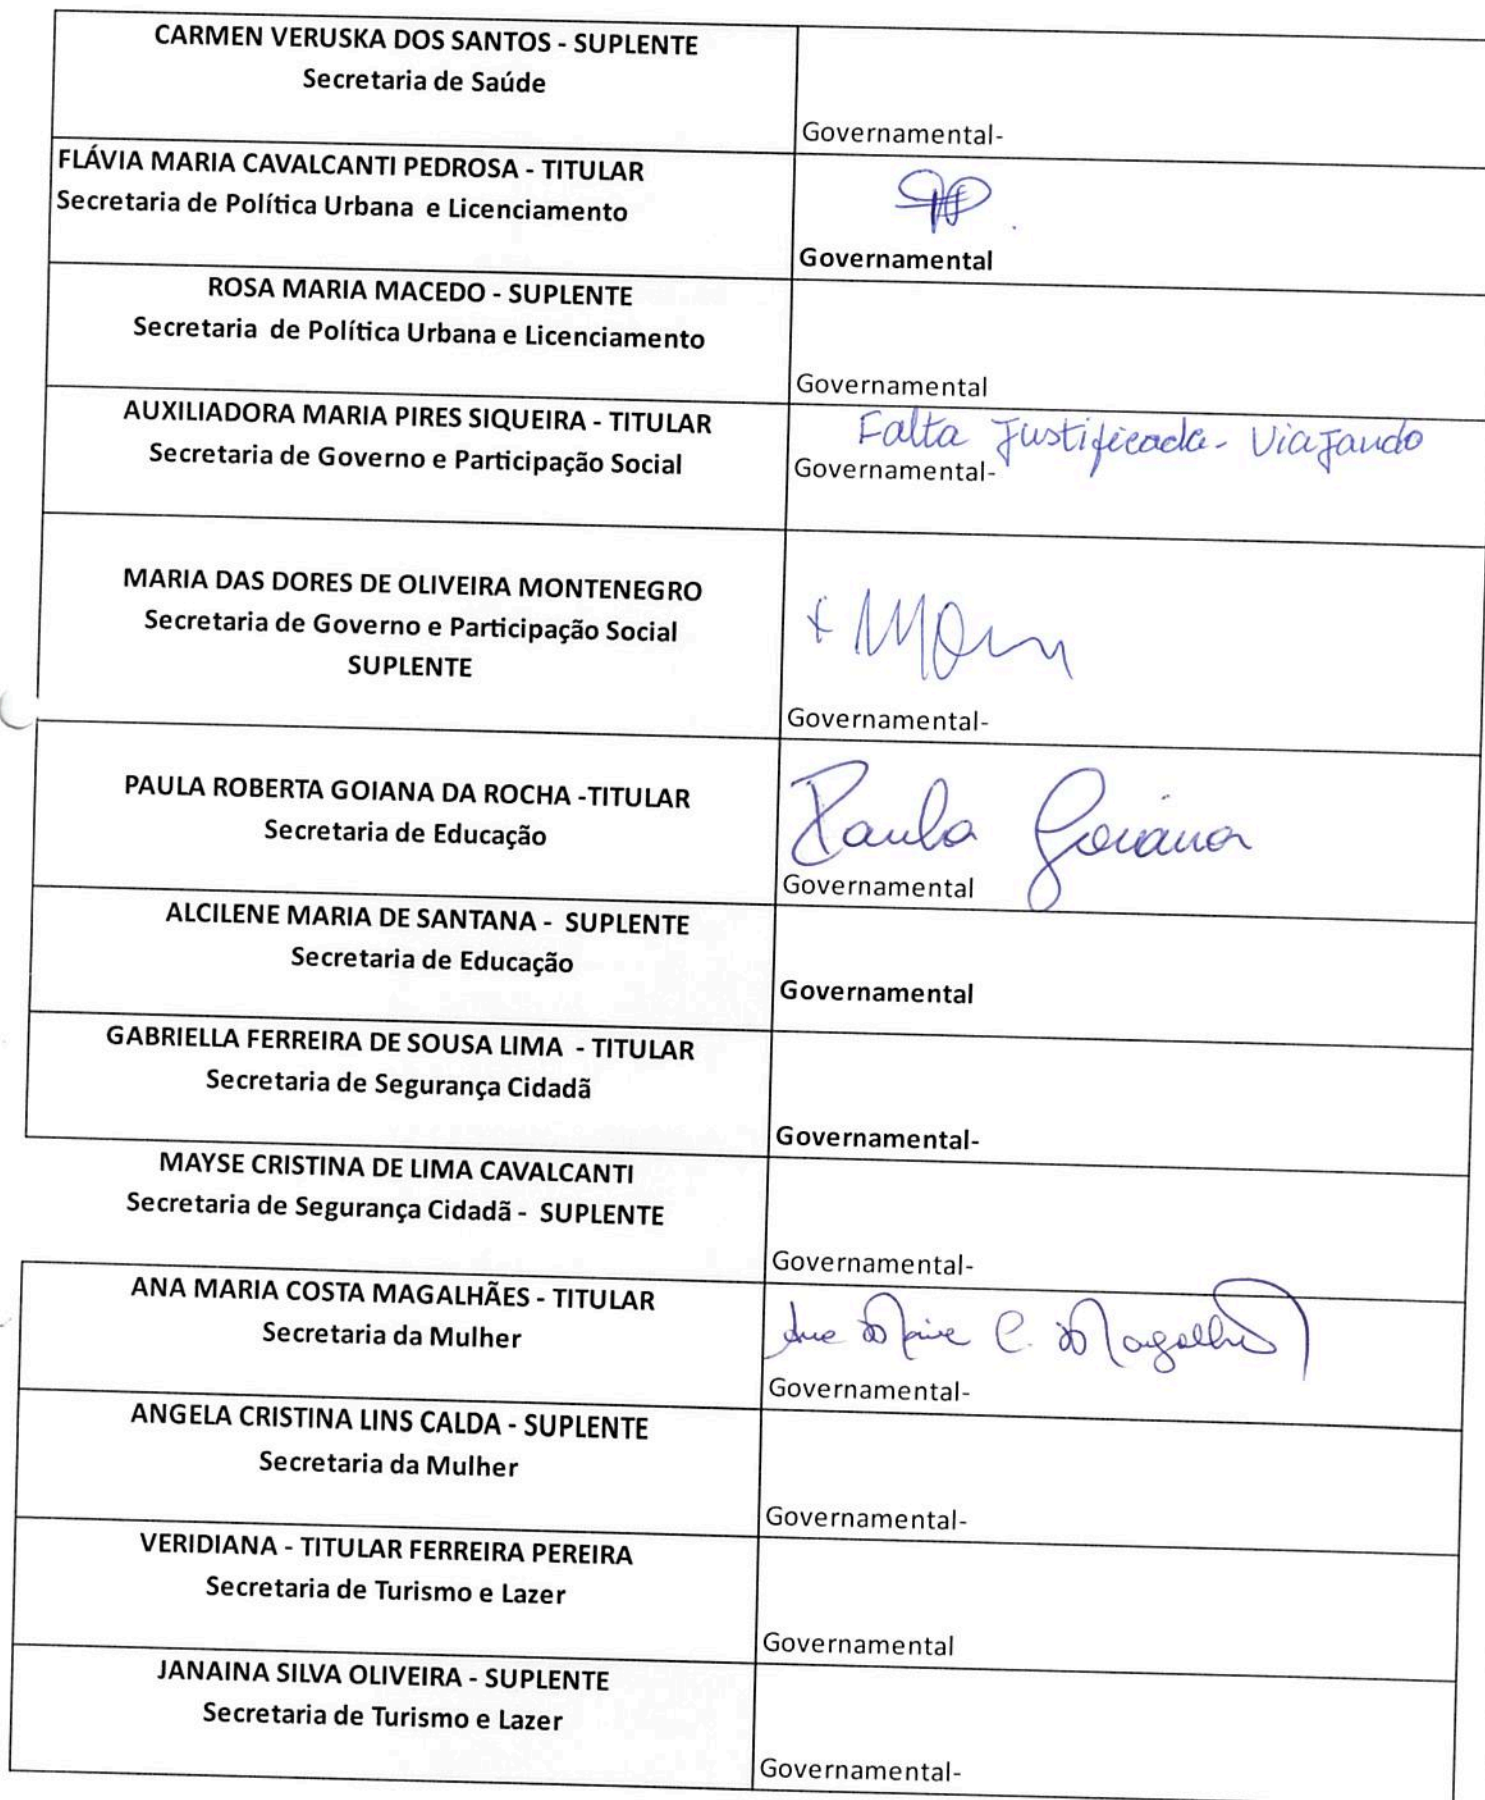 CARMEN VERUSKA DOS SANTOS - SUPLENTE
Secretaria de Saúde
Governamental-
FLÁVIA MARIA CAVALCANTI PEDROSA - TITULAR
Secretaria de Política Urbana e Licenciamento
Governamental
ROSA MARIA MACEDO - SUPLENTE
Secretaria de Política Urbana e Licenciamento
Governamental
AUXILIADORA MARIA PIRES SIQUEIRA - TITULAR
Secretaria de Governo e Participação Social
Falta Justificada - Viajando
Governamental-
MARIA DAS DORES DE OLIVEIRA MONTENEGRO
Secretaria de Governo e Participação Social
SUPLENTE
Governamental-
PAULA ROBERTA GOIANA DA ROCHA -TITULAR
Secretaria de Educação
Paula Goiana
Governamental
ALCILENE MARIA DE SANTANA - SUPLENTE
Secretaria de Educação
Governamental
GABRIELLA FERREIRA DE SOUSA LIMA - TITULAR
Secretaria de Segurança Cidadã
Governamental-
MAYSE CRISTINA DE LIMA CAVALCANTI
Secretaria de Segurança Cidadã - SUPLENTE
Governamental-
ANA MARIA COSTA MAGALHÃES - TITULAR
Secretaria da Mulher
Ana Maria C. Magalhães
Governamental-
ANGELA CRISTINA LINS CALDA - SUPLENTE
Secretaria da Mulher
Governamental-
VERIDIANA - TITULAR FERREIRA PEREIRA
Secretaria de Turismo e Lazer
Governamental
JANAINA SILVA OLIVEIRA - SUPLENTE
Secretaria de Turismo e Lazer
Governamental-